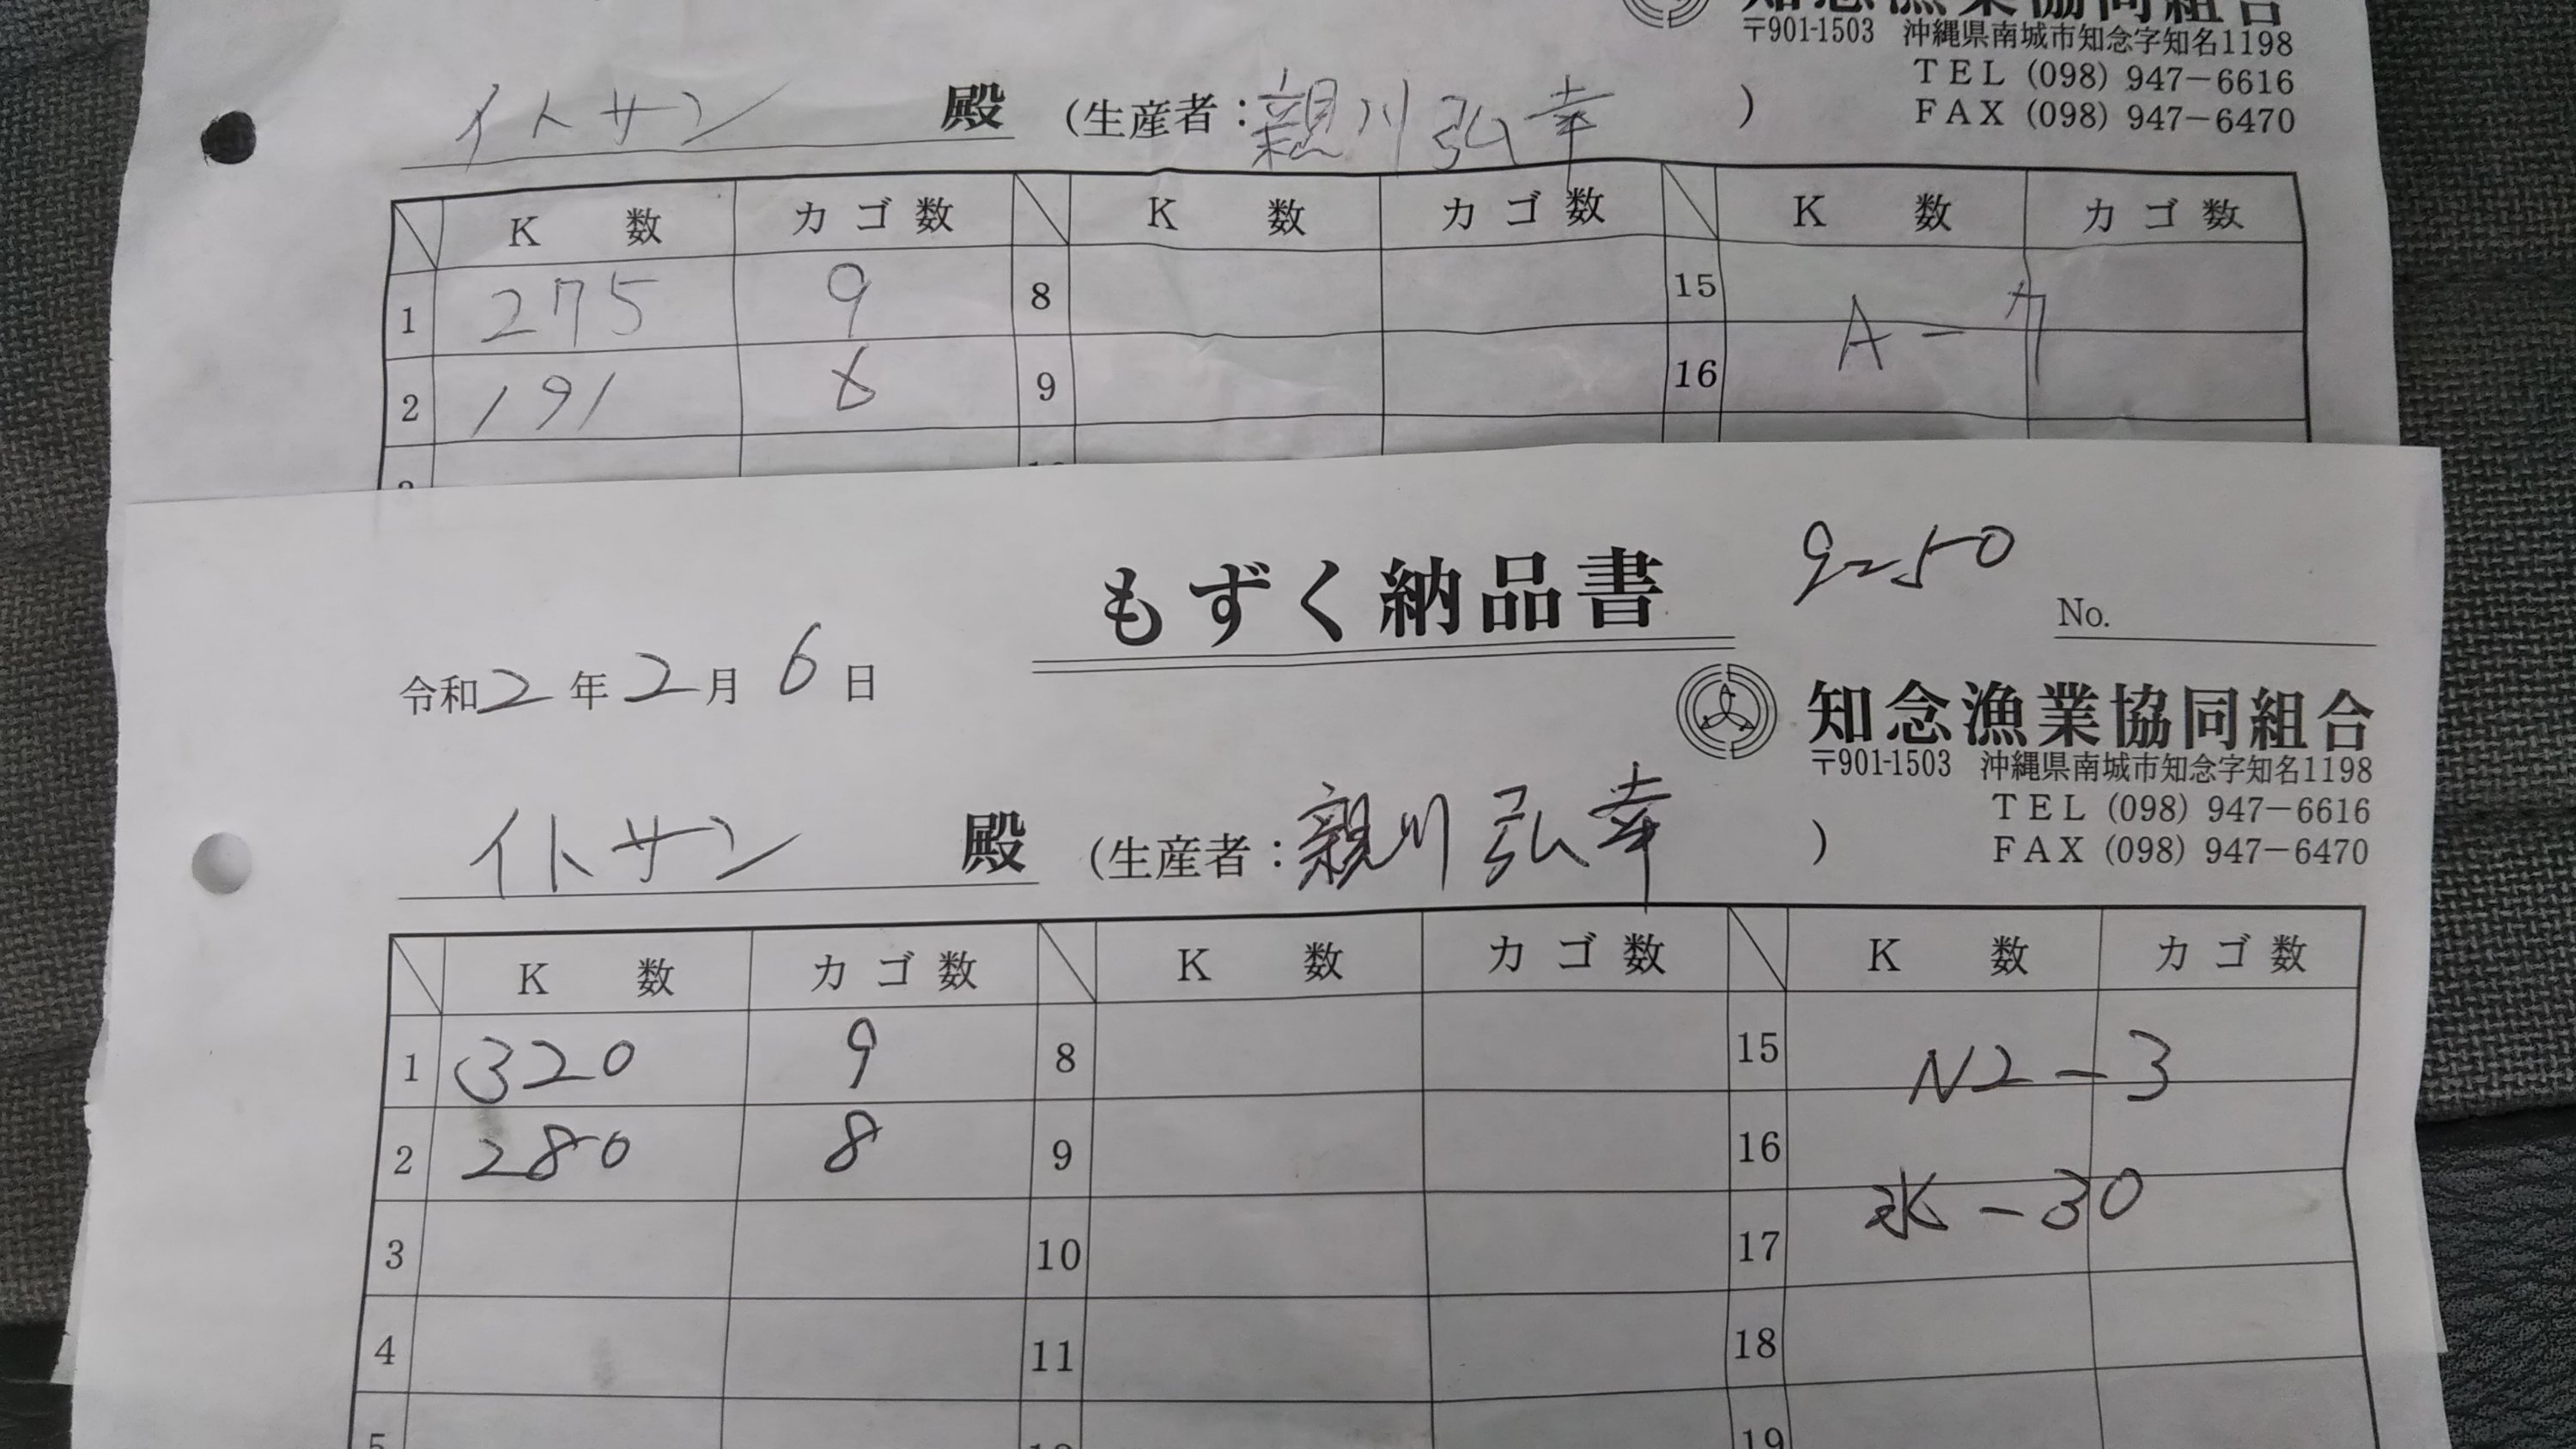 知念漁業協同組合
〒901-1503 沖縄県南城市知念字知名1198
TEL (098) 947-6616
FAX (098) 947-6470
イトサン 殿 (生産者：親川弘幸 )
K 数 カゴ数 K 数 カゴ数 K 数 カゴ数
1 275 9 8 15
2 191 6 9 16
A-カ
もずく納品書
9-50
No.
令和2年2月6日
知念漁業協同組合
〒901-1503 沖縄県南城市知念字知名1198
TEL (098) 947-6616
FAX (098) 947-6470
イトサン 殿 (生産者：親川弘幸 )
K 数 カゴ数 K 数 カゴ数 K 数 カゴ数
1 320 9 8 15 N2-3
2 280 8 9 16
3 10 17 氷-30
4 11 18
5 12 19